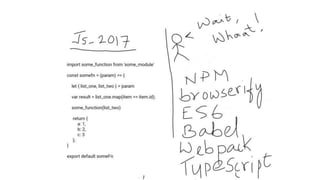 JS-2017
import some_function from 'some_module'
const somefn = (param) => {
let { list_one, list_two } = param
var result = list_one.map(item => item.id);
some_function(list_two)
return {
a: 1,
b: 2,
c: 3
};
}
export default someFn
Wait, !
Whaat!
NPM
browserify
ES6
Babel
Webpack
TypeScript